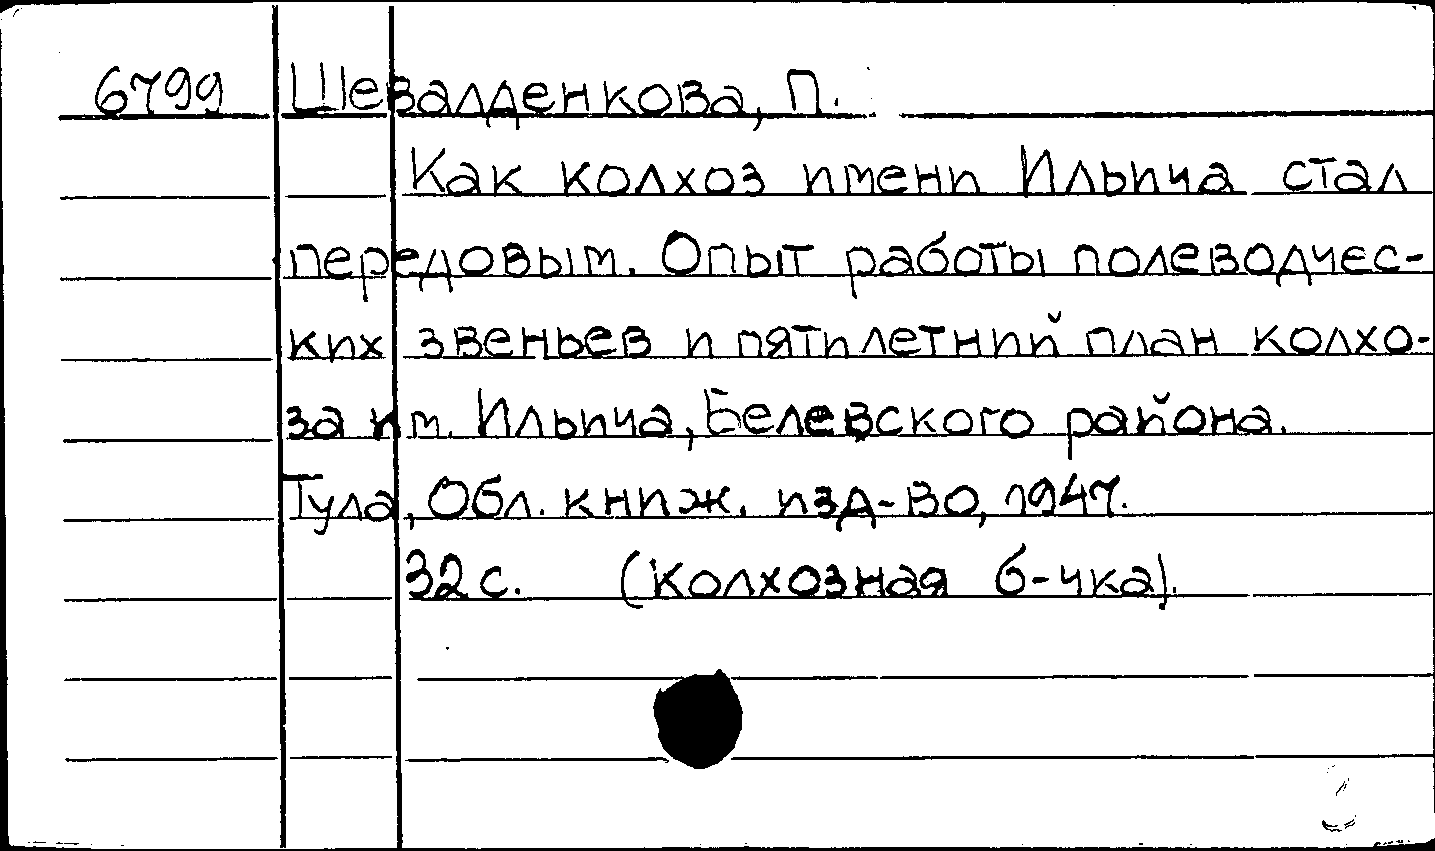 6799 Шевалденкова, П.
Как колхоз имени Ильича стал
передовым. Опыт работы полеводчес-
ких звеньев и пятилетний план колхо-
за им. Ильича, Белевского района.
Тула, Обл. книж. изд-во, 1947.
32 с. (Колхозная б-чка).